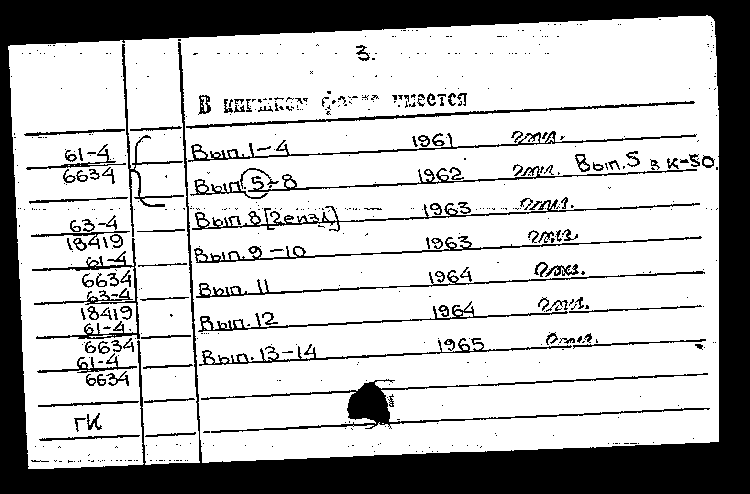 3.
В книжном фонде имеется
61-4
6634
Вып. 1-4 1961 отд.
Вып. 5-8 1962 отд. Вып. 5 в К-50.
63-4
18419
Вып. 8 [2е изд] 1963 отд.
61-4
6634
Вып. 9-10 1963 отд.
63-4
18419
Вып. 11 1964 отд.
61-4.
6634
Вып. 12 1964 отд.
61-4
6634
Вып. 13-14 1965 отд.
ГК